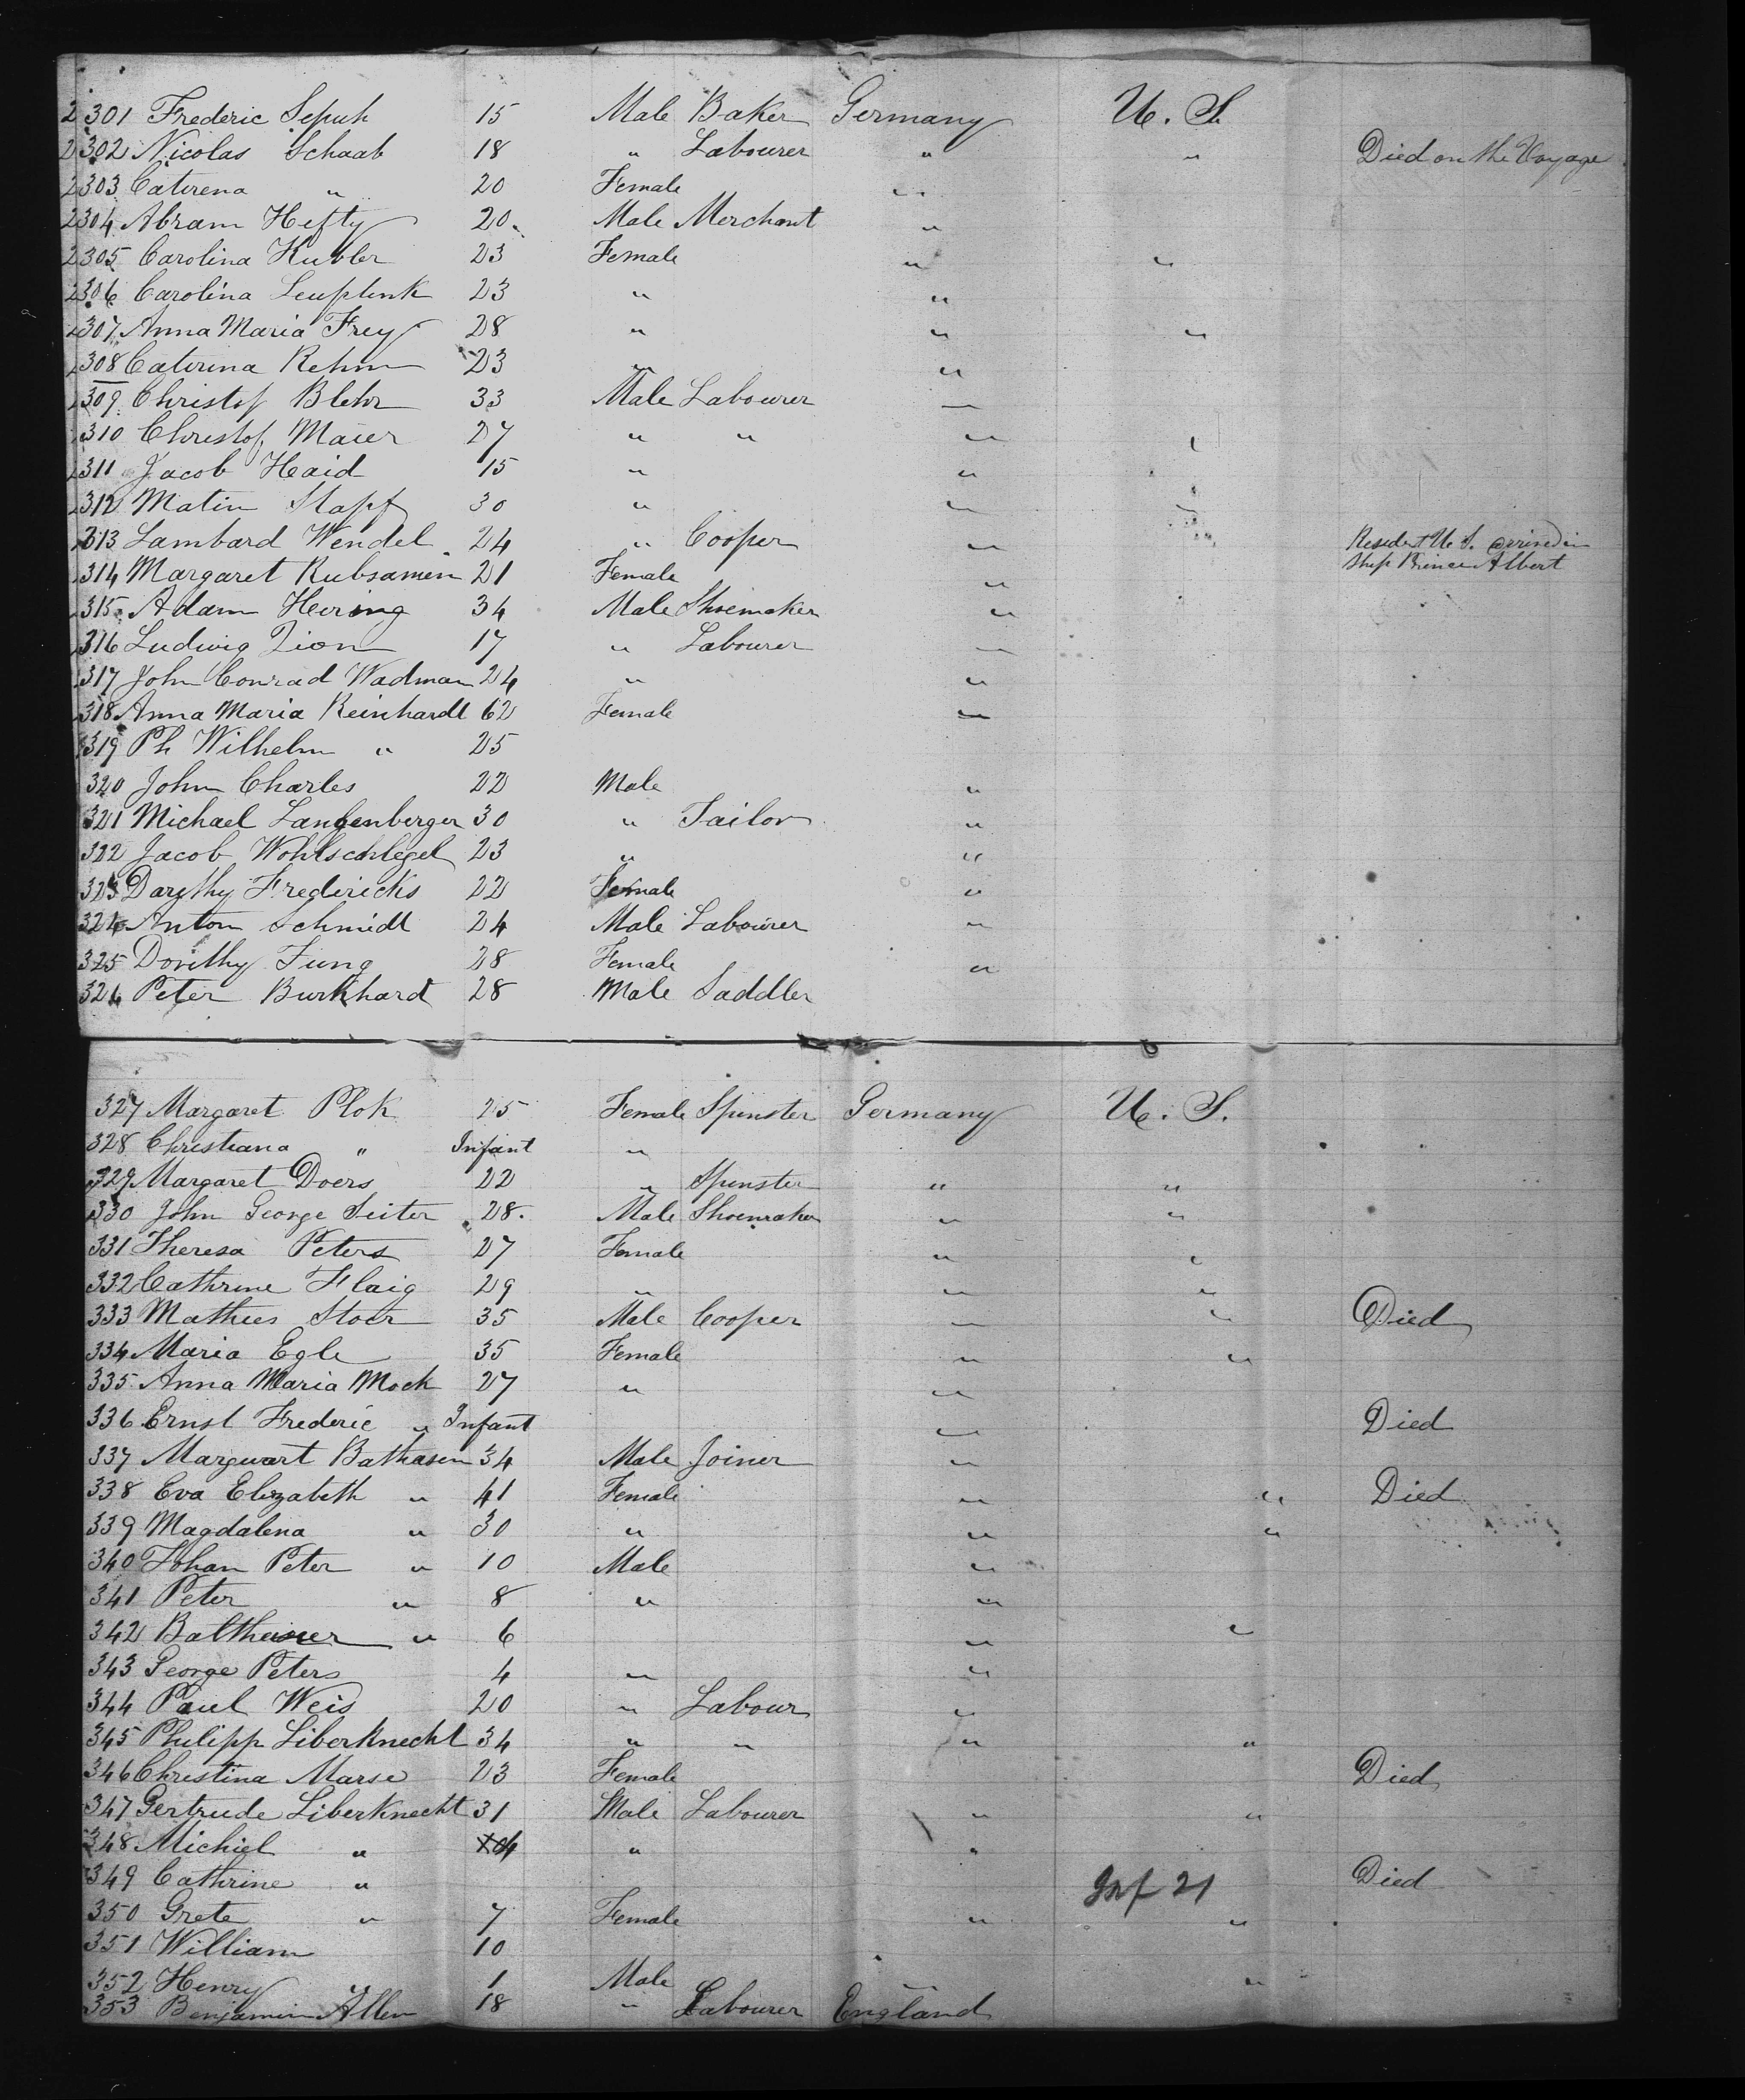 301 Frederic Sepuh 15 Male Baker Germany U. S.
302 Nicolas Schaab 18 " Labourer " " Died on the Voyage
303 Catirena " 20 Female "
304 Abram Hefty 20 Male Merchant "
305 Carolina Kubler 23 Female " "
306 Carolina Leuplink 23 " "
307 Anna Maria Frey 28 " " "
308 Catirina Rehm 23 " "
309 Christof Blehr 33 Male Labourer "
310 Christof Maier 27 " " " "
311 Jacob Haid 15 " "
312 Matin Stapf 30 " "
313 Lambard Wendel 24 " Cooper " Resident U. S. arrived in
314 Margaret Rubsamen 21 Female " Ship Prince Albert
315 Adam Hering 34 Male Shoemaker "
316 Ludwig Zion 17 " Labourer "
317 John Conrad Wadman 24 " "
318 Anna Maria Reinhardt 62 Female "
319 Ph Wilhelm " 25
320 John Charles 22 Male "
321 Michael Langenberger 30 " Tailor "
322 Jacob Wohlschlegel 23 " "
323 Dorythy Fredericks 22 Female "
324 Anton Schmidt 24 Male Labourer "
325 Dorithy Jung 28 Female "
326 Peter Burkhard 28 Male Saddler
327 Margaret Plok 25 Female Spinster Germany U. S.
328 Christiana " Infant "
329 Margaret Doers 22 " Spinster " "
330 John George Seiter 28. Male Shoemaker " "
331 Theresa Peters 27 Female " "
332 Cathrine Flaig 29 " " "
333 Mathies Stoer 35 Male Cooper " " Died
334 Maria Egle 35 Female " "
335 Anna Maria Mock 27 " "
336 Ernst Frederic " Infant " Died
337 Marguart Bathasen 34 Male Joiner "
338 Eva Elizabeth " 41 Female " " Died
339 Magdalena " 30 " " "
340 Johan Peter " 10 Male "
341 Peter " 8 " "
342 Balthasuer " 6 " "
343 George Peters 4 " "
344 Paul Weis 20 " Labour "
345 Philipp Liberknecht 34 " " " "
346 Christina Marse 23 Female Died
347 Gertrude Liberknecht 31 Male Labourer " "
348 Michiel " " "
349 Cathrine " Inf 21 Died
350 Grete " 7 Female " "
351 William 10
352 Henry 1 Male " "
353 Benjamin Allen 18 " Labourer England